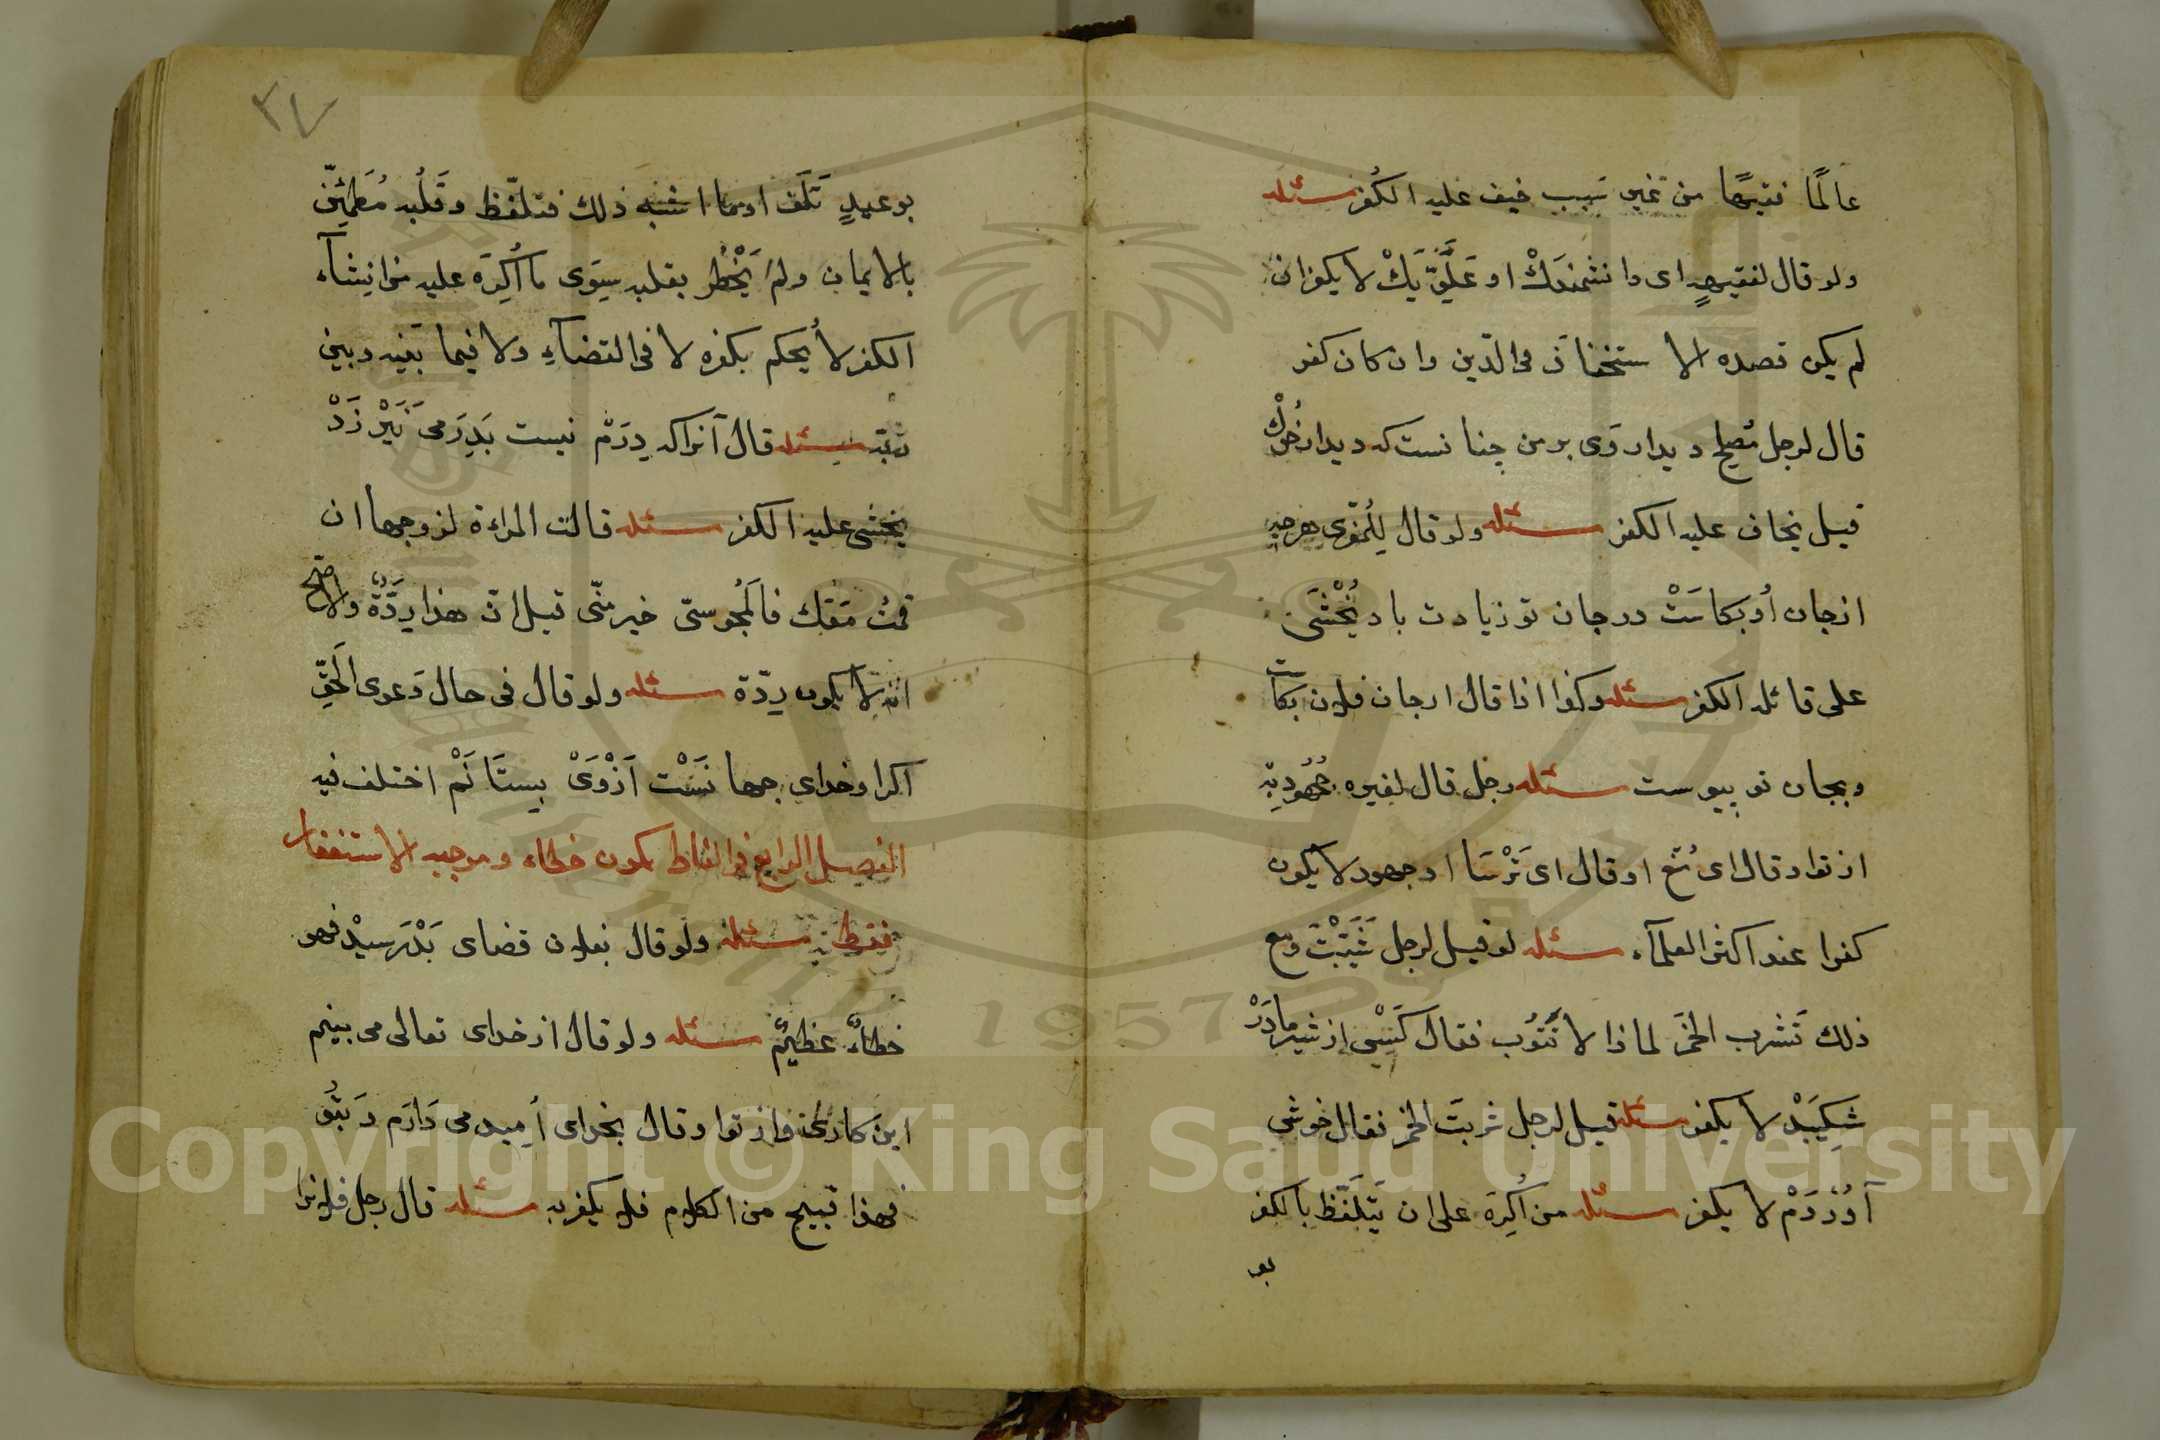 عالمًا فقيهًا من غير سَبب خيف عليه الكُفر مسئله
ولو قال لفقيهٍ اى دانشمندك او عَلَيَّوِيَكْ لا يكفر ان
لم يكن قصده الا ستخفاف فى الدّين وان كان كفر
قال لرجل مُصلح ديدار وَى بر من چنا نست كه ديدار خُوك
قيل يخاف عليه الكفر مسئله ولو قال لِلمُقرى هرچه
از جان اُو بكاسَتْ در جان تو زيادت باد يُخْشَى
على قائله الكفر مسئله وكذا اذا قال ارجان فلان بكاست
وبجان تو پيوست مسئله رجل قال لغيره جُهُود بِه
از تو او قال اى مُغ او قال اى تَرْسَا او جهود لا يكون
كفرا عند اكثر العلمآء مسئله لو قيل لرجل تَثَبَّتْ ومع
ذلك تَشرب الخمَر لماذا لا تَتُوب فقال كَسِى از شير مادَرْ
شَكِيبَدْ لا يكفر مسئله قيل لرجل شربتَ الخمر فقال خوش
آوُرْدَمْ لا يكفر مسئله من اُكِرهَ على ان يَتلَفَّظ بالكفر
بو
٣٧
بوعيدٍ تَلَف او ما اشبه ذلك فتلفّظ وقَلْبه مُطمَئِنّ
بالايمان ولم يَخْطُر بقلبه سِوَى ما اُكرِهَ عليه من انشآء
الكفر لا يُحكم بكفره لا فى القضآءِ ولا فيما بَينه وبين
ربّه مسئله قال آنرا كه دِرَمْ نيست بَدِرَمى نَيَرْزَدْ
يخشى عليه الكفر مسئله قالت المراءة لزوجها ان
قمتُ مَعَك فالمَجُوسىّ خير منّى قيل انّ هذا رِدَّةٌ والاصّح
انّه لا يكون رِدّة مسئله ولو قال فى حال دَعوى الَحقِّ
اكر او خداى جهانَسْت اَزْوَىْ بِستَانَمْ اختلف فيه
الفصل الرابع فى الفاظ يكون خطاء وموجبه الاستغفار
فقط مسئله ولو قال بفلان قضاى بَدْ رَسيدْ فهو
خطاءٌ عظيمٌ مسئله ولو قال از خداى تعالى مى بينم
اين كار واز تو او قال بخداى اُميد مى دَارَم وَبتُو
فهذا قبيح من الكلام فلا يكفر به مسئله قال رجل فلانرا